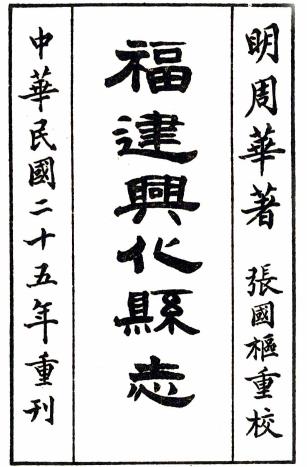 明周華著 張國樞重校
福建興化縣志
中華民國二十五年重刊